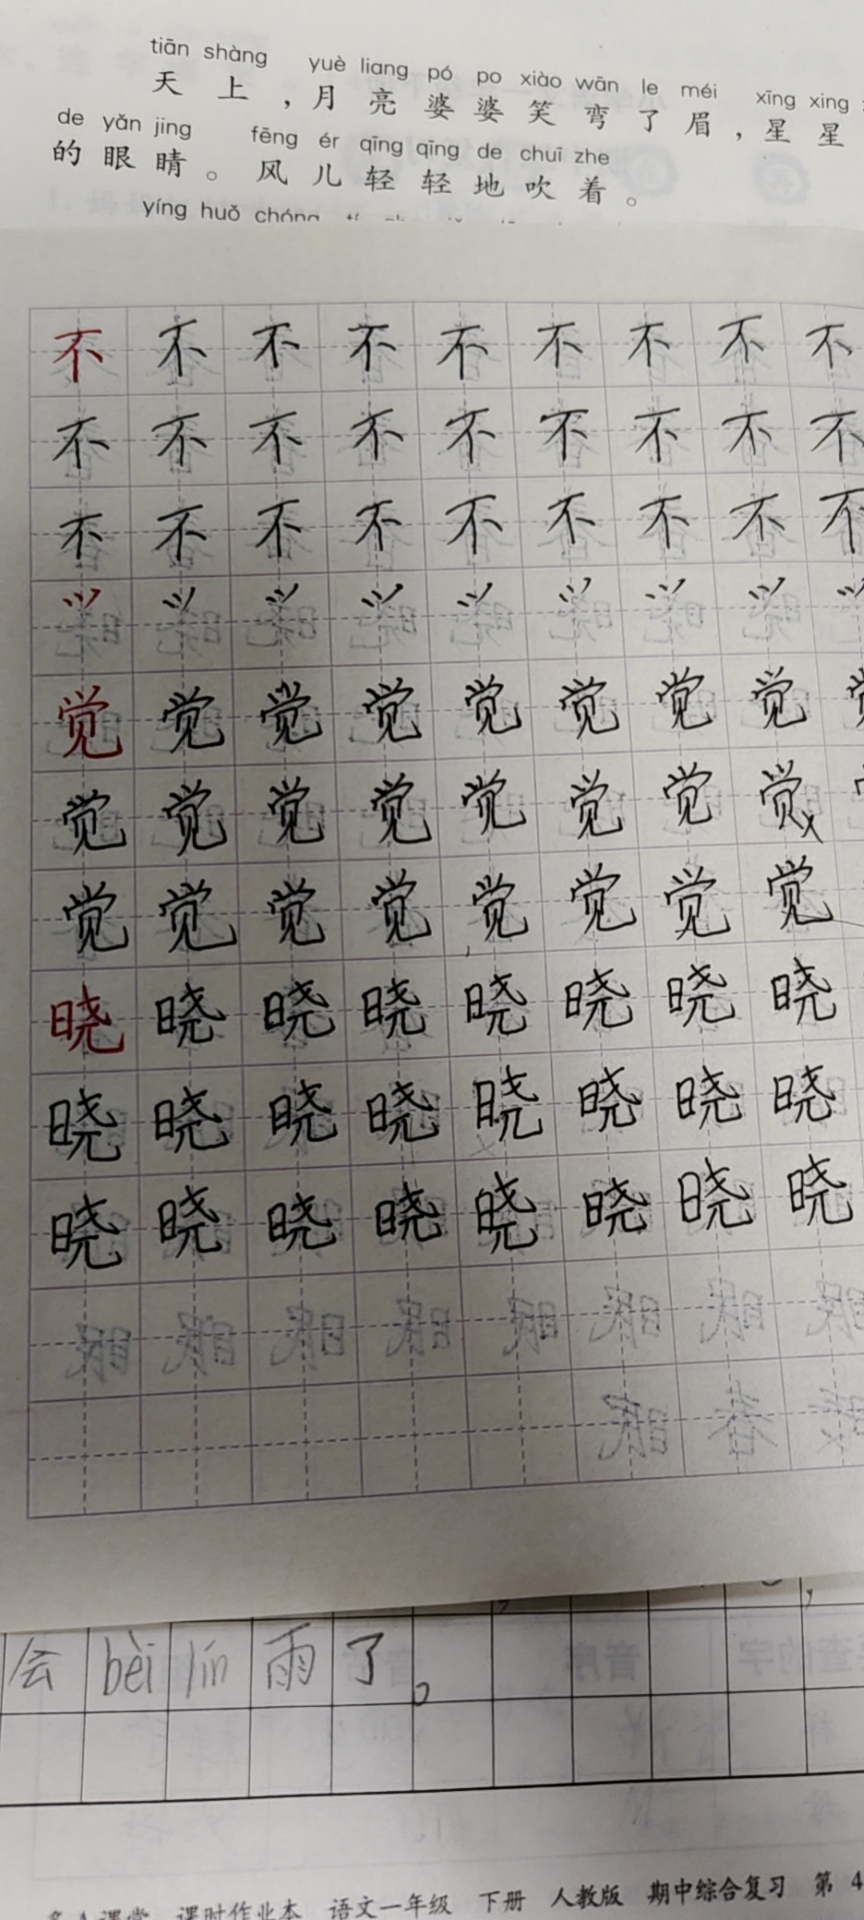 tiān shàng yuè liang pó po xiào wān le méi xīng xing
天上，月亮婆婆笑弯了眉，星星
de yǎn jing fēng ér qīng qīng de chuī zhe
的眼睛。风儿轻轻地吹着。
yíng huǒ chóng
不不不不不不不不不
不不不不不不不不不
不不不不不不不不不
觉觉觉觉觉觉觉觉
觉觉觉觉觉觉觉觉
觉觉觉觉觉觉觉觉
晓晓晓晓晓晓晓晓
晓晓晓晓晓晓晓晓
晓晓晓晓晓晓晓晓
会bèi lín雨了。
课堂 课时作业本 语文一年级 下册 人教版 期中综合复习 第4